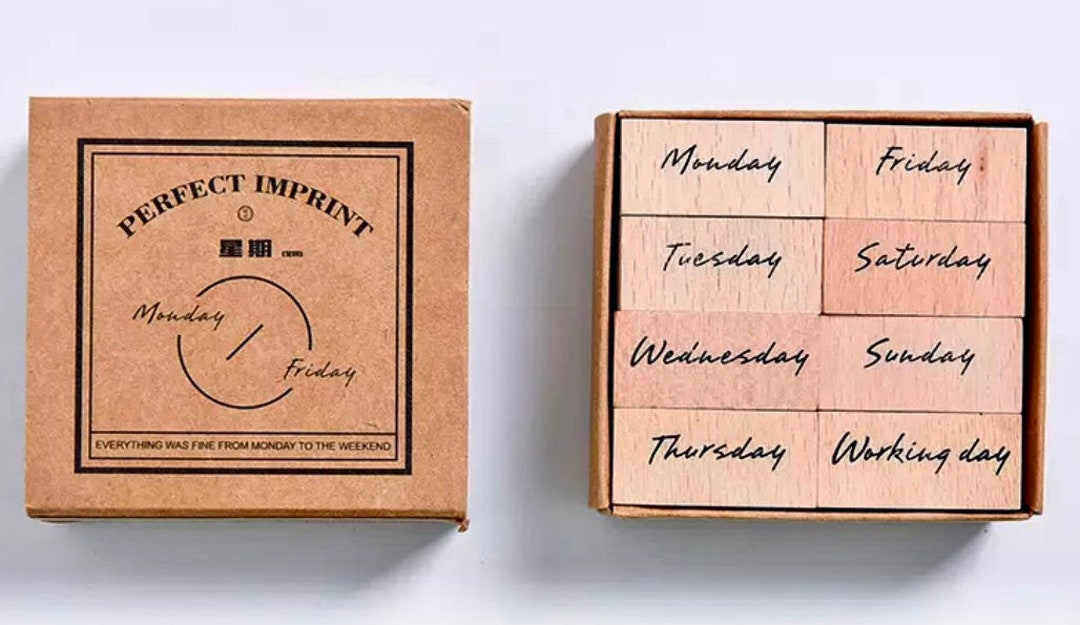 PERFECT IMPRINT
星期
Monday
Friday
EVERYTHING WAS FINE FROM MONDAY TO THE WEEKEND
Monday
Friday
Tuesday
Saturday
Wednesday
Sunday
Thursday
Working day